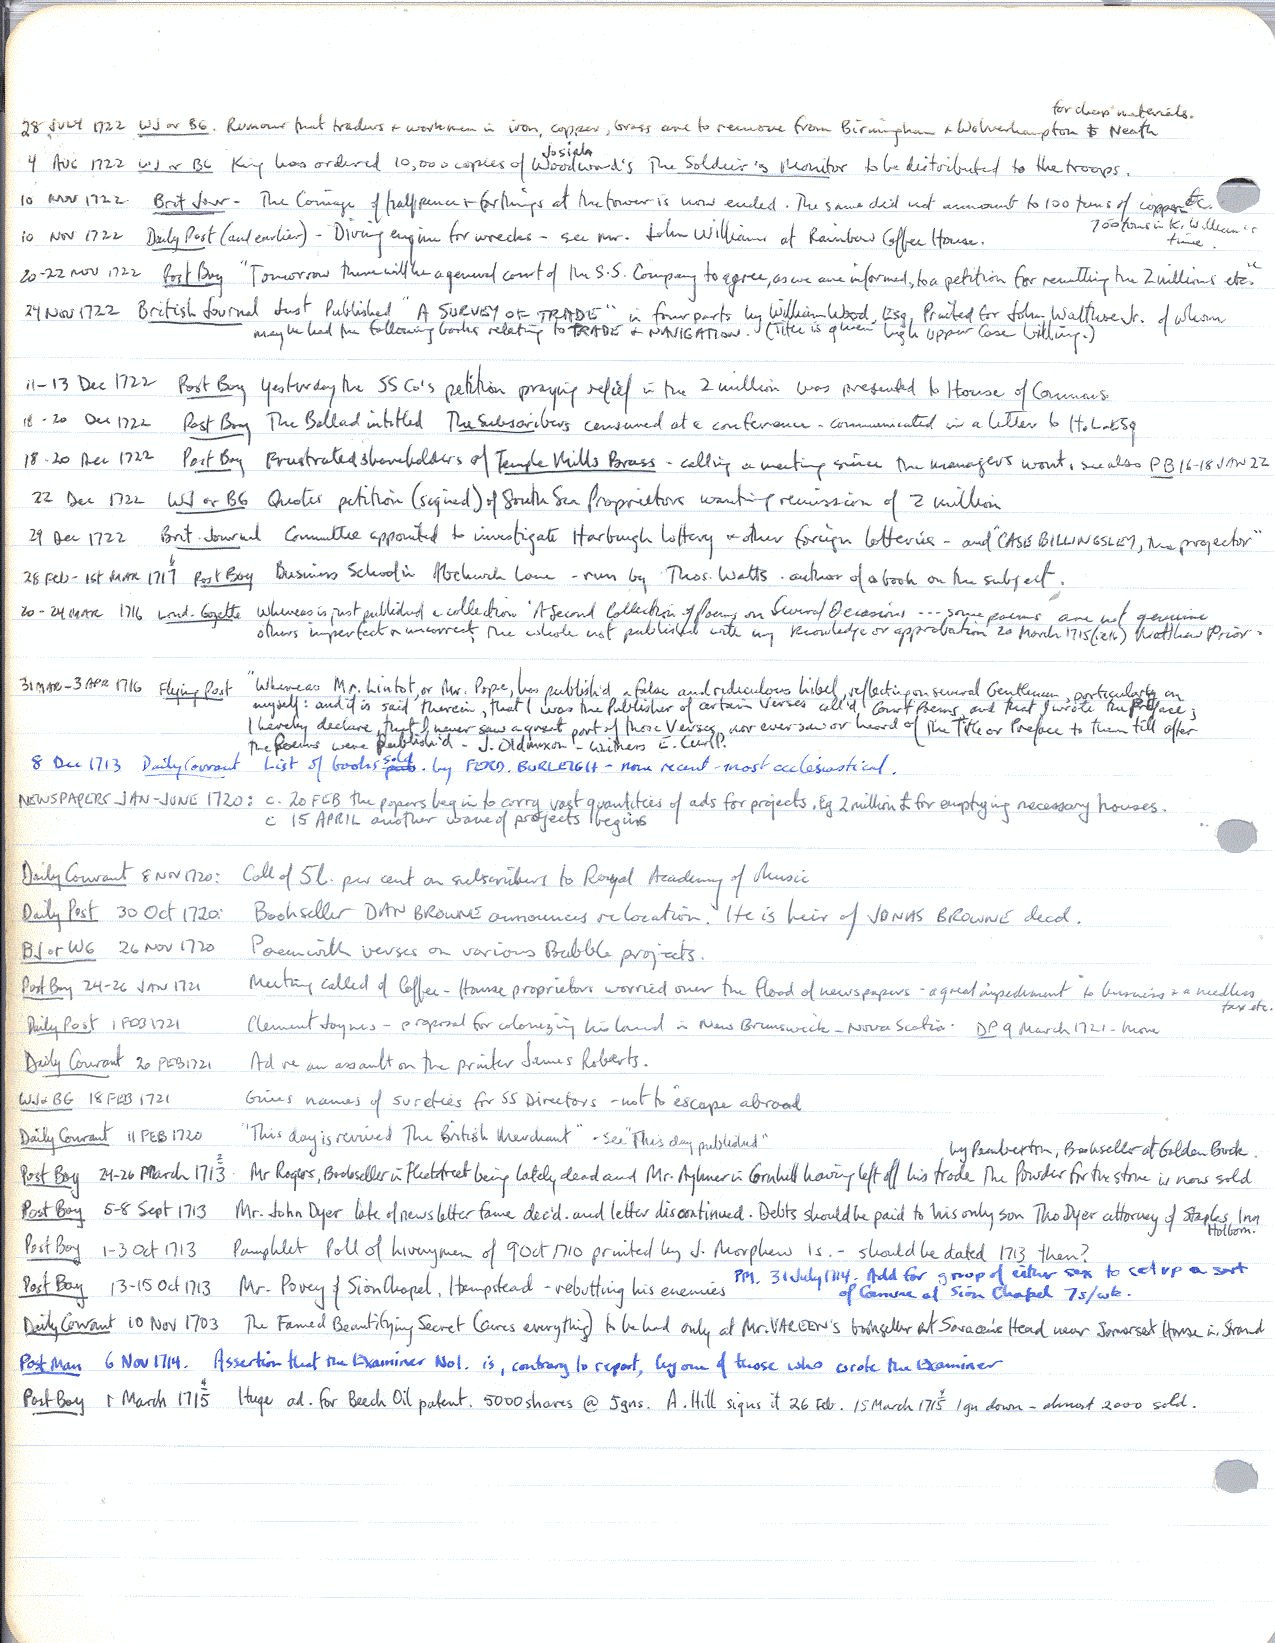 for cheap materials.
28 JULY 1722 WJ or BG. Rumour that traders + workmen in iron, copper, brass are to remove from Birmingham + Wolverhampton to Neath
Josiah
4 AUG 1722 WJ or BG King has ordered 10,000 copies of Woodward's The Soldier's Monitor to be distributed to the troops.
10 NOV 1722 Brit Jour - The Coinage of halfpence + farthings at the tower is now ended. The same did not amount to 100 tuns of copper etc.
700 tuns in K. William's time.
10 NOV 1722 Daily Post (and earlier) - Diving engine for wrecks - see Mr. John Williams at Rainbow Coffee House.
20-22 NOV 1722 Post Boy "Tomorrow there will be a general court of the S.S. Company to agree, as we are informed, to a petition for remitting the 2 millions etc."
24 NOV 1722 British Journal Just Published "A SURVEY OF TRADE" in four parts by William Wood, Esq, Printed for John Walthoe Jr. of whom
may be had the following books relating to TRADE + NAVIGATION. (Title is given high upper case billing.)
11-13 Dec 1722 Post Boy Yesturday the SS Co's petition praying relief in the 2 million was presented to House of Commons
18-20 Dec 1722 Post Boy The Ballad intitled The Subscribers censured at a conference - communicated in a letter to
18-20 Dec 1722 Post Boy Frustrated shareholders of Temple Mills Brass - calling a meeting since the managers wont. see also PB 16-18 JAN 22
22 Dec 1722 WJ or BG Quotes petition (signed) of South Sea Proprietors wanting remission of 2 million
29 Dec 1722 Brit. Journal Committee appointed to investigate Harburgh lottery + other foreign lotteries - and "CASE BILLINGSLEY, the projector"
28 FEB - 1st MAR 171 Post Boy Business School in Abchurch Lane - run by Thos. Watts - author of a book on the subject.
20-24 MAR 1716 Lond. Gazette Whereas is just published a collection 'A Second Collection of Poems on Several Occasions --- some poems are not genuine
others imperfect or incorrect, the whole not published with my Knowledge or approbation 20 March 1715 Matthew Prior.
31 MAR - 3 APR 1716 Flying Post "Whereas Mr. Lintot, or Mr. Pope, has publish'd a false and ridiculous libel, reflecting on several Gentlemen, particularly on
myself: and it is said therein, that I was the Publisher of certain Verses call'd Court Poems, and that I wrote the Preface;
I hereby declare, that I never saw a great part of those Verses, nor ever saw or heard of the Title or Preface to them till after
the Poems were publish'd - J. Oldmixon - Withers E. Curll.
8 Dec 1713 Daily Courant List of books sold by FERD. BURLEIGH - none recent - most ecclesiastical.
NEWSPAPERS JAN-JUNE 1720: c. 20 FEB the papers begin to carry vast quantities of ads for projects, Eg 2 million £ for emptying necessary houses.
c 15 APRIL another wave of projects begins
Daily Courant 8 NOV 1720: Call of 5l. per cent on subscribers to Royal Academy of Music
Daily Post 30 Oct 1720: Bookseller DAN BROWNE announces relocation. He is heir of JONAS BROWNE decd.
BJ or WG 26 NOV 1720 Poem with verses on various Bubble projects.
Post Boy 24-26 JAN 1721 Meeting called of Coffee-House proprietors worried over the flood of newspapers - "a great impediment" to business + a needless
tax etc.
Daily Post 1 FEB 1721 Clement Joynes - proposal for colonizing his land in New Brunswick - Nova Scotia. DP 9 March 1721 - more
Daily Courant 20 FEB 1721 Ad re an assault on the printer James Roberts.
WJ or BG 18 FEB 1721 Gives names of sureties for SS Directors - not to escape abroad
Daily Courant 11 FEB 1720 "This day is revived The British Merchant" - see "This day published"
by Pemberton, Bookseller at Golden Buck.
Post Boy 24-26 March 1713 Mr Rogers, Bookseller in Fleetstreet being lately dead and Mr. Aylmer in Cornhill having left off his trade The Powder for the stone is now sold
Post Boy 5-8 Sept 1713 Mr. John Dyer late of newsletter fame dec'd. and letter discontinued. Debts should be paid to his only son Tho Dyer attorney of Staples Inn
Holborn.
Post Boy 1-3 Oct 1713 Pamphlet Poll of liverymen of 9 Oct 1710 printed by J. Morphew 1s. - should be dated 1713 then?
Post Boy 13-15 Oct 1713 Mr. Povey of Sion Chapel, Hempstead - rebutting his enemies PM. 31 July 1714. Add for group of either sex to set up a sort
of at Sion Chapel 7s/wk.
Daily Courant 10 Nov 1703 The Famed Beautifying Secret (cures everything) to be had only at Mr. VAREEN's bookseller at Saracens Head near Somerset House in Strand
Post Man 6 NOV 1714. Assertion that the Examiner No1. is, contrary to report, by one of those who wrote the Examiner
Post Boy 1 March 1715 Huge ad. for Beech Oil patent. 5000 shares @ 5gns. A. Hill signs it 26 Feb. 15 March 1715 1gn down - almost 2000 sold.